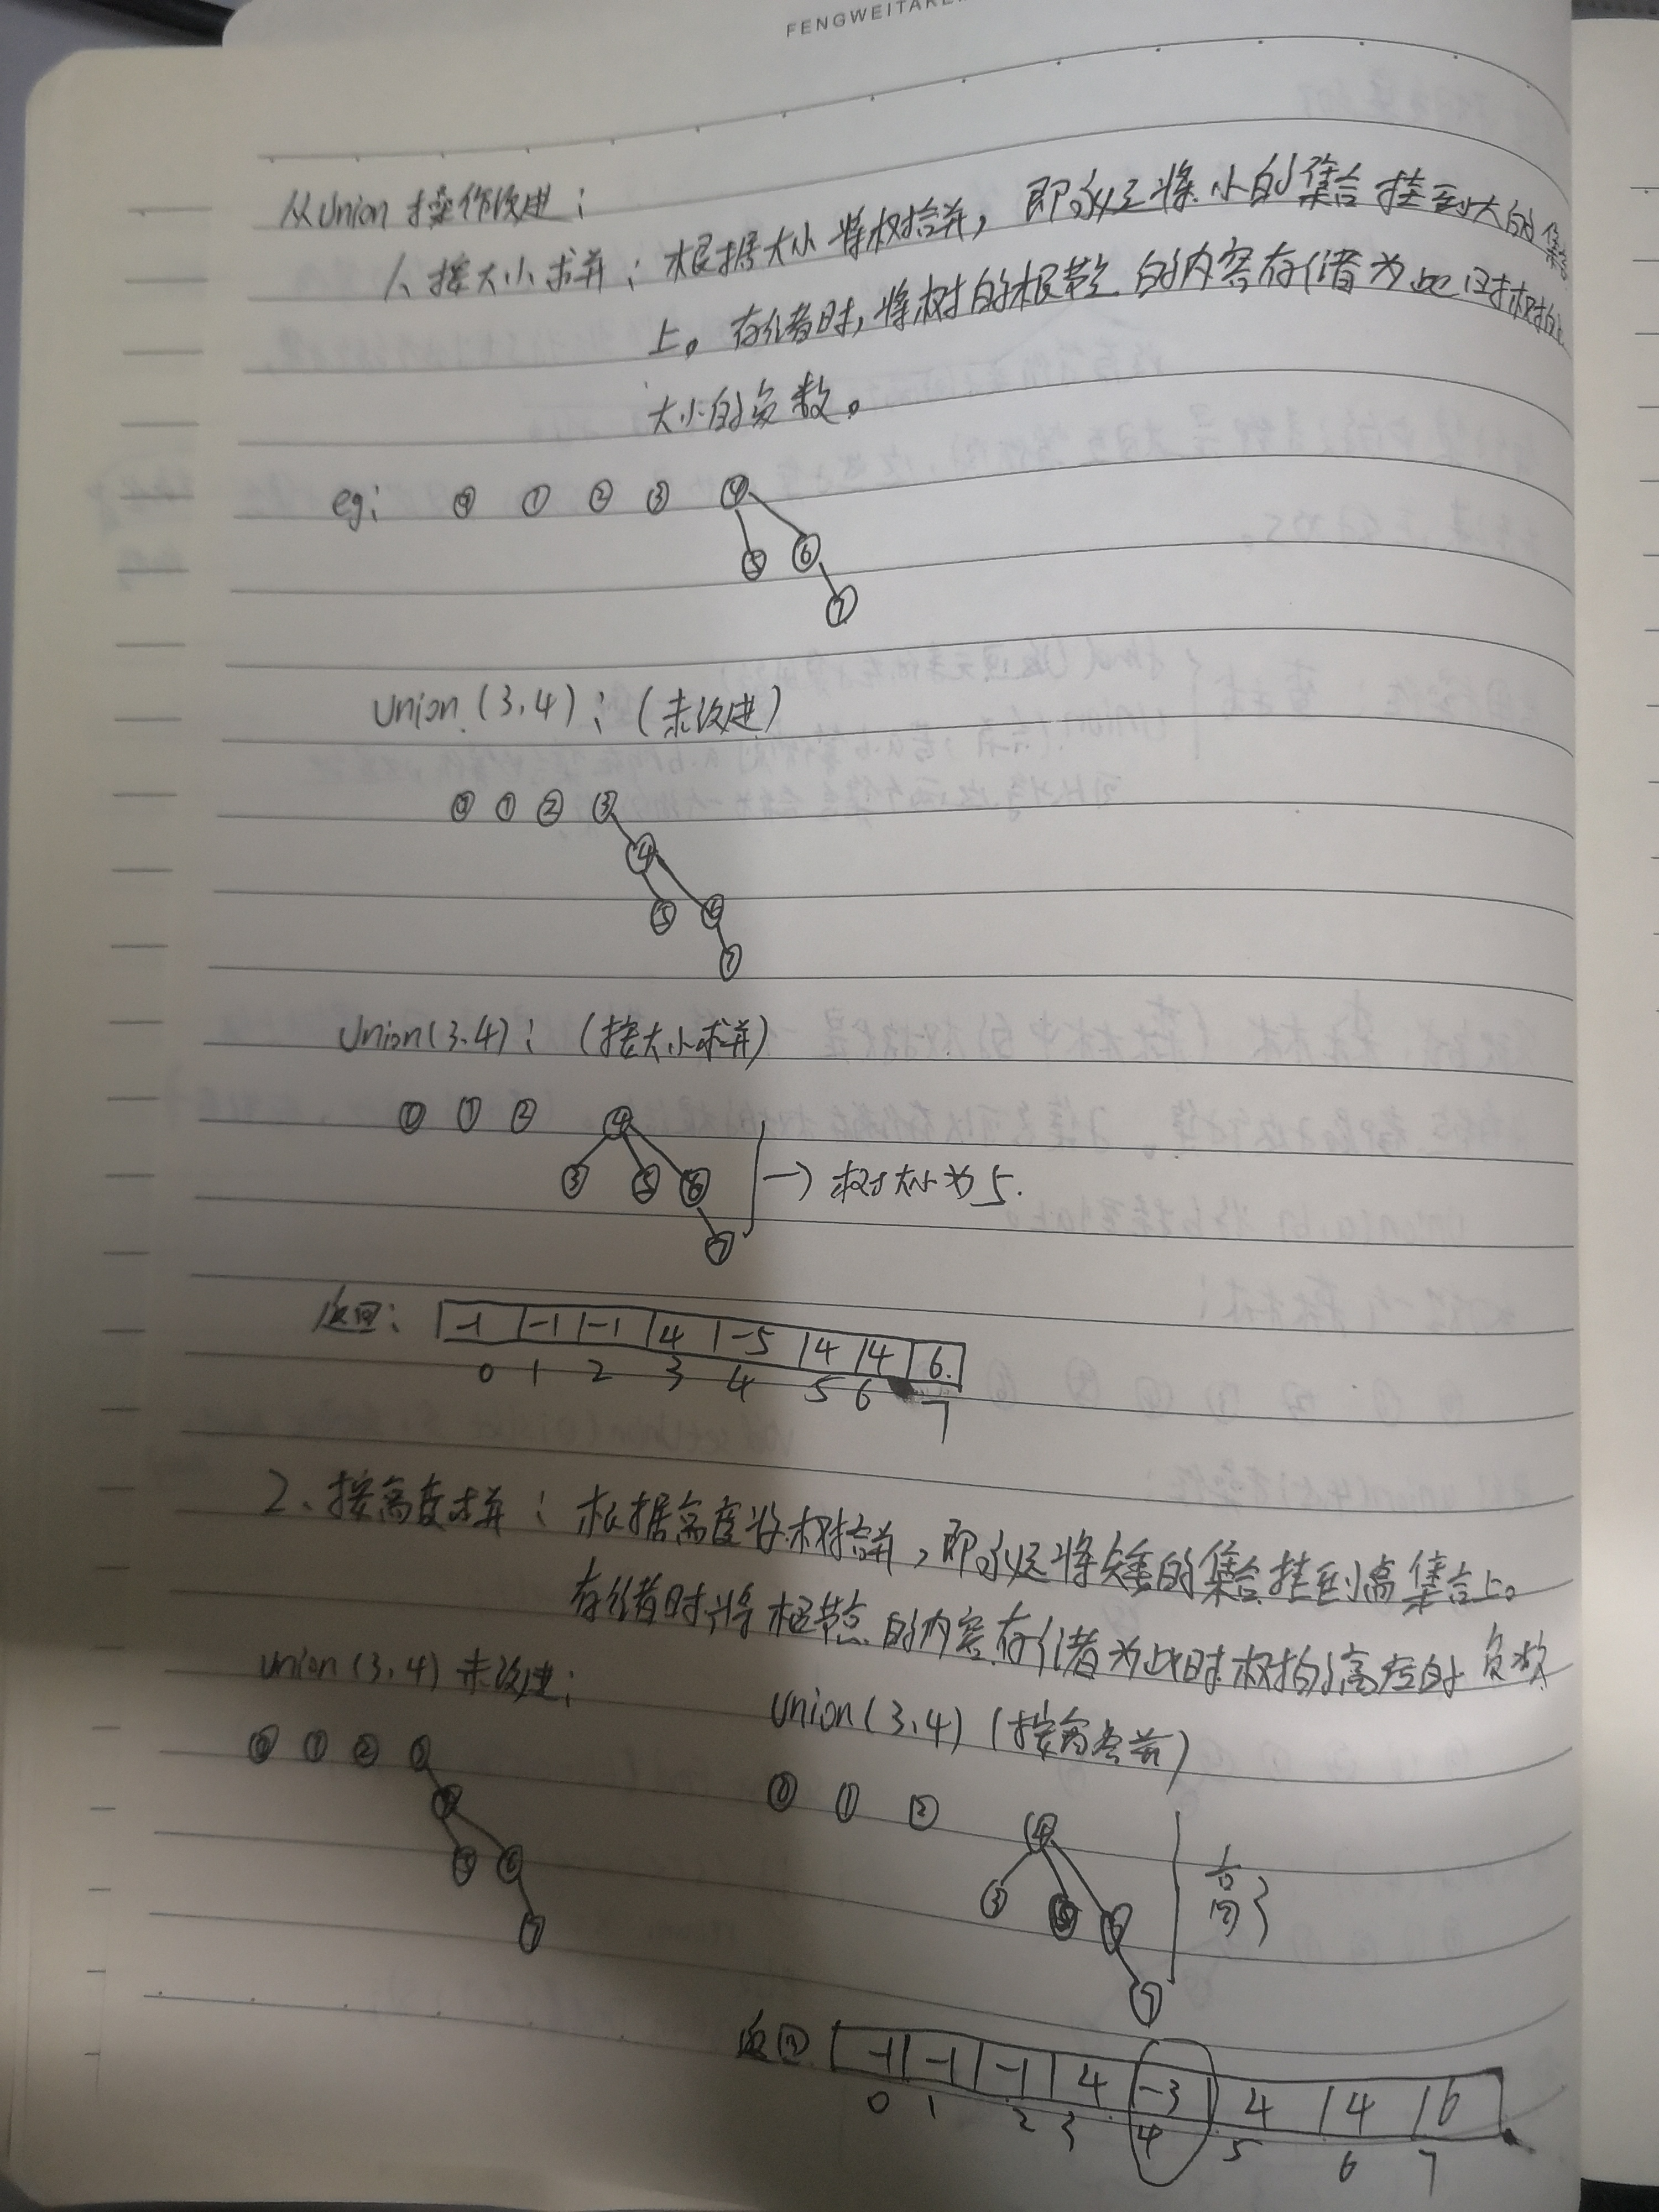 FENGWEITARE
从Union操作改进：
1、按大小求并：根据大小将树合并，即永远将小的集合挂到大的集合
上。存储时，将树的根节点的内容存储为此时树的
大小的负数。
eg: 0 1 2 3 4
5 6
7
Union(3,4)：(未改进)
0 1 2 3
4
5 6
7
Union(3,4)：(按大小求并)
0 1 2 4
3 5 6 → 树大小为5.
7
返回: -1 -1 -1 4 -5 4 4 6
0 1 2 3 4 5 6 7
2、按高度求并：根据高度将树合并，即永远将矮的集合挂到高集合上。
存储时将根节点的内容存储为此时树的高度的负数
union(3,4)未改进：
union(3,4)(按高求并)
0 1 2 3
4
5 6
7
0 1 2 4
3 5 6 高3
7
返回 -1 -1 -1 4 -3 4 4 6
0 1 2 3 4 5 6 7